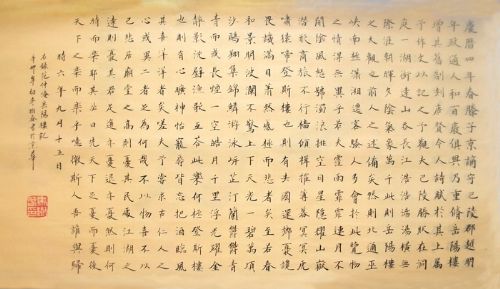 慶曆四年春滕子京謫守巴陵郡越明
年政通人和百廢俱興乃重修岳陽樓
增其舊制刻唐賢今人詩賦於其上屬
予作文以記之予觀夫巴陵勝狀在洞
庭一湖銜遠山吞長江浩浩湯湯橫無
際涯朝暉夕陰氣象萬千此則岳陽樓
之大觀也前人之述備矣然則北通巫
峽南極瀟湘遷客騷人多會於此覽物
之情得無異乎若夫霪雨霏霏連月不
開陰風怒號濁浪排空日星隱耀山嶽
潛形商旅不行檣傾楫摧薄暮冥冥虎
嘯猿啼登斯樓也則有去國懷鄉憂讒
畏譏滿目蕭然感極而悲者矣至若春
和景明波瀾不驚上下天光一碧萬頃
沙鷗翔集錦鱗游泳岸芷汀蘭鬱鬱青
青而或長煙一空皓月千里浮光耀金
靜影沈璧漁歌互答此樂何極登斯樓
也則有心曠神怡寵辱皆忘把酒臨風
其喜洋洋者矣嗟夫予嘗求古仁人之
心或異二者之為何哉不以物喜不以
己悲居廟堂之高則憂其民處江湖之
遠則憂其君是進亦憂退亦憂然則何
時而樂耶其必曰先天下之憂而憂後
天下之樂而樂乎噫微斯人吾誰與歸
時六年九月十五日
右錄范仲淹岳陽樓記
辛卯年初冬書於京華